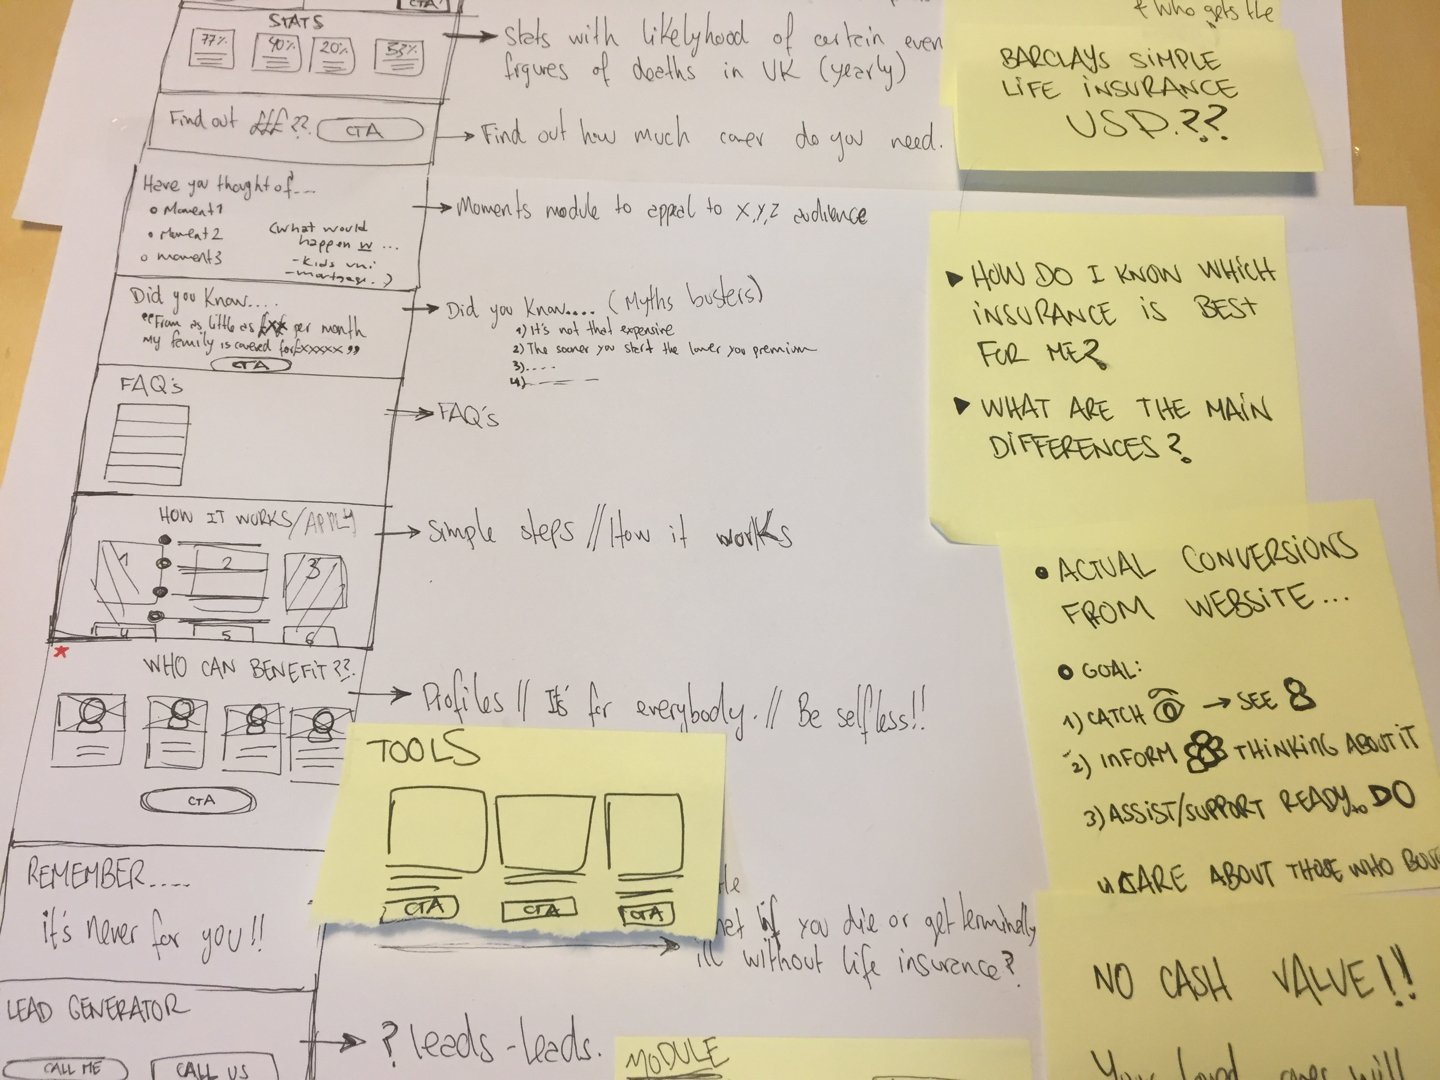 CTA
STATS
77% 40% 20% 33%
Find out £££??. CTA
Have you thought of....
Moment 1
Moment 2
moment 3
(what would
happen w ...
- kids uni
- mortgage..)
Did you Know....
"From as little as £xx per month
My family is covered for £xxxxx"
CTA
FAQ's
HOW IT WORKS/APPLY
1 2 3
4 5 6
*
WHO CAN BENEFIT??.
CTA
REMEMBER.....
it's never for you!!
LEAD GENERATOR
CALL ME CALL US
Stats with likelyhood of certain even
figures of deaths in UK (yearly)
Find out how much cover do you need.
Moments module to appeal to X,Y,Z audience
Did you Know.... (Myths busters)
1) It's not that expensive
2) The sooner you start the lower you premium
3)....
4)
FAQ's
Simple steps // How it works
Profiles // It's for everybody. // Be selfless!!
TOOLS
CTA CTA CTA
if you die or get terminally
ill without life insurance?
? leads - leads.
MODULE
& who gets the
BARCLAYS SIMPLE
LIFE INSURANCE
USP.??
▶ HOW DO I KNOW WHICH
INSURANCE IS BEST
FOR ME?
▶ WHAT ARE THE MAIN
DIFFERENCES?
• ACTUAL CONVERSIONS
FROM WEBSITE...
• GOAL:
1) CATCH → SEE
2) INFORM THINKING ABOUT IT
3) ASSIST/SUPPORT READY to DO
CARE ABOUT THOSE WHO BOU
NO CASH VALUE!!
will